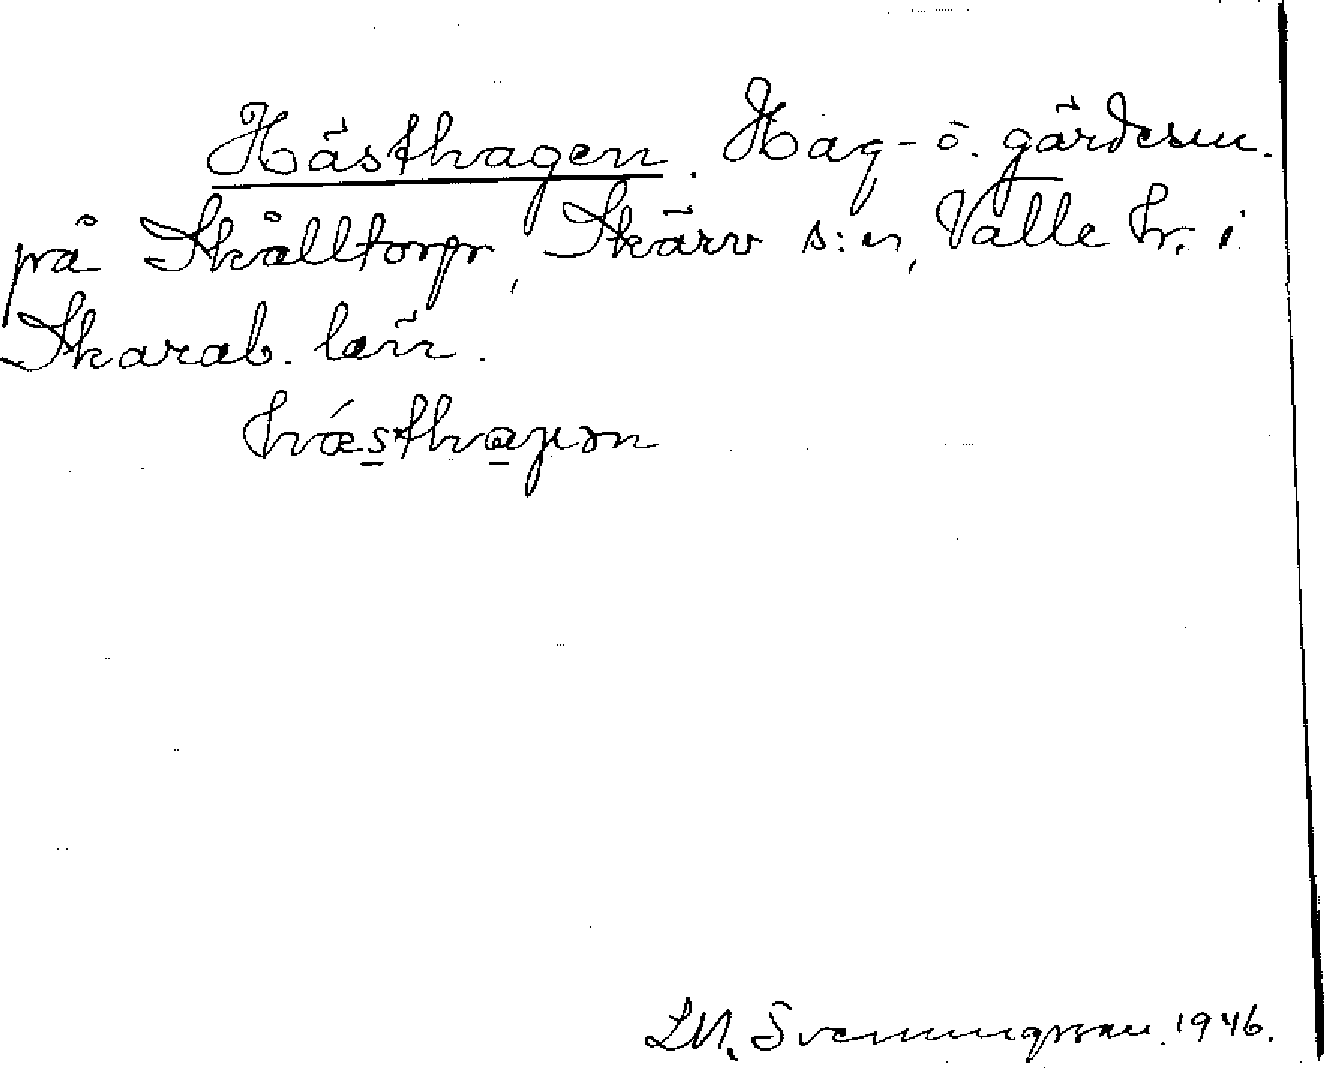 Hästhagen. Hag- o. gärdesn.
på Skålltorp, Skärv s:n, Valle hr. i
Skarab. län.
hǽsthaɡən
L.M. Svenungsson. 1946.